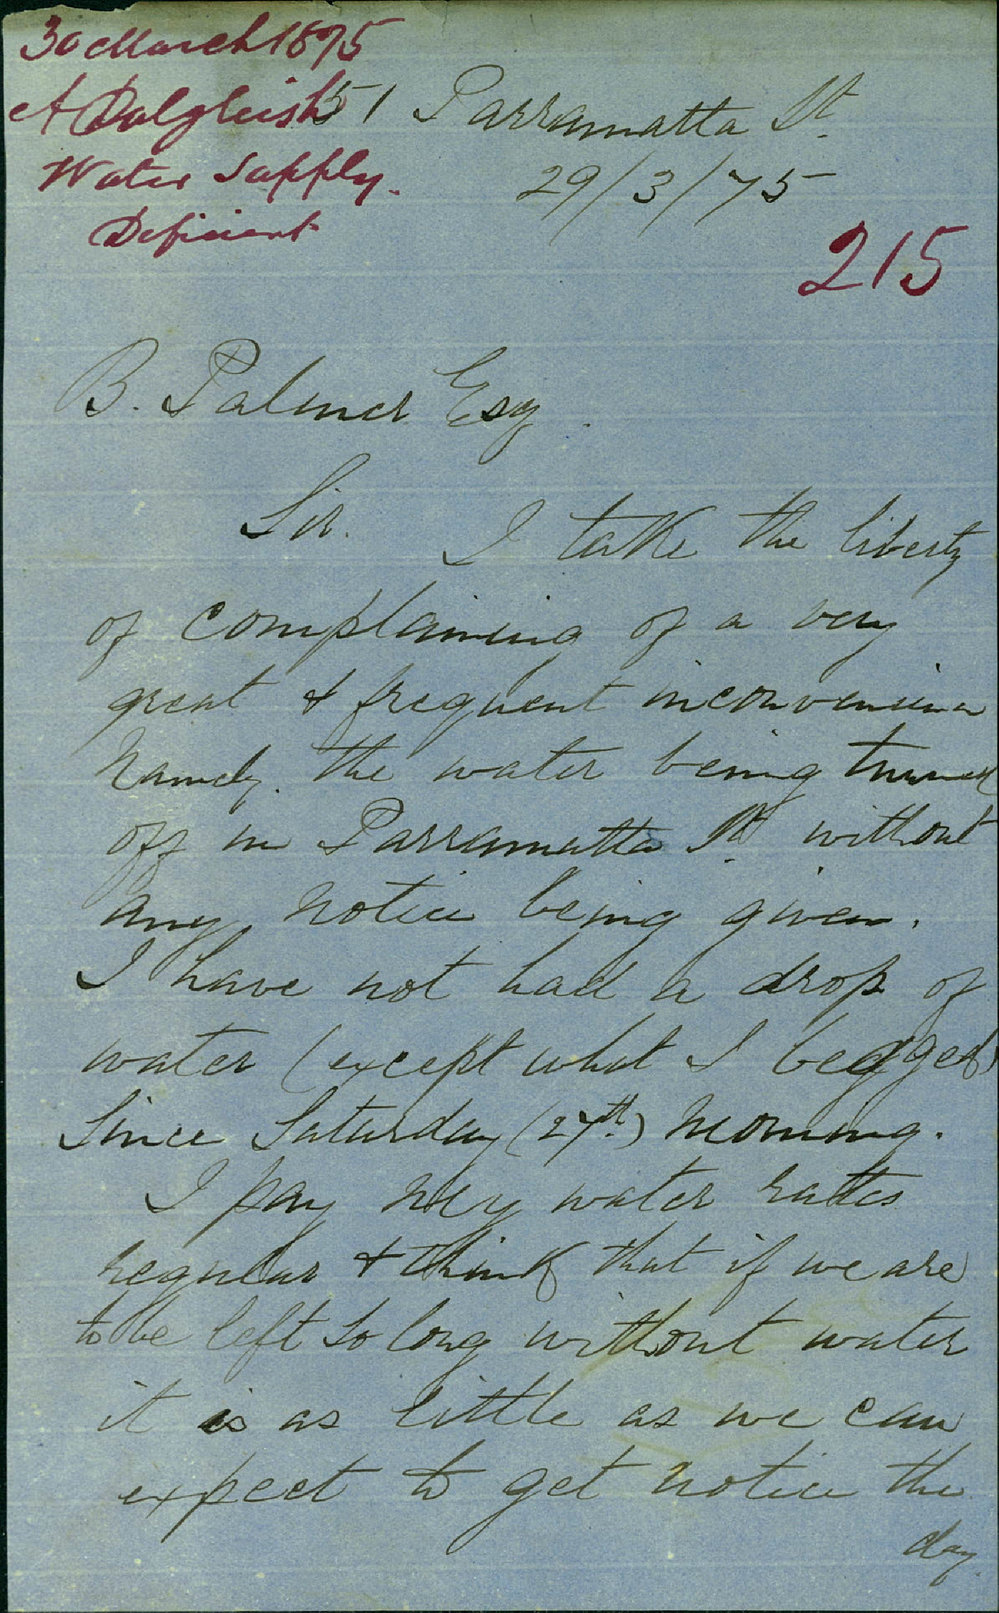 30 March 1875
A Dalgleish
Water Supply.
Deficient
51 Parramatta St.
29/3/75
215
B. Palmer Esq.
Sir. I take the liberty
of complaining of a very
great & frequent inconvenience
Namely. the water being turned
off in Parramatta St without
any notice being given.
I have not had a drop of
water (except what I begged)
Since Saturday (27th.) Morning.
I pay my water rates
regular & think that if we are
to be left so long without water
it is as little as we can
expect to get notice the
day